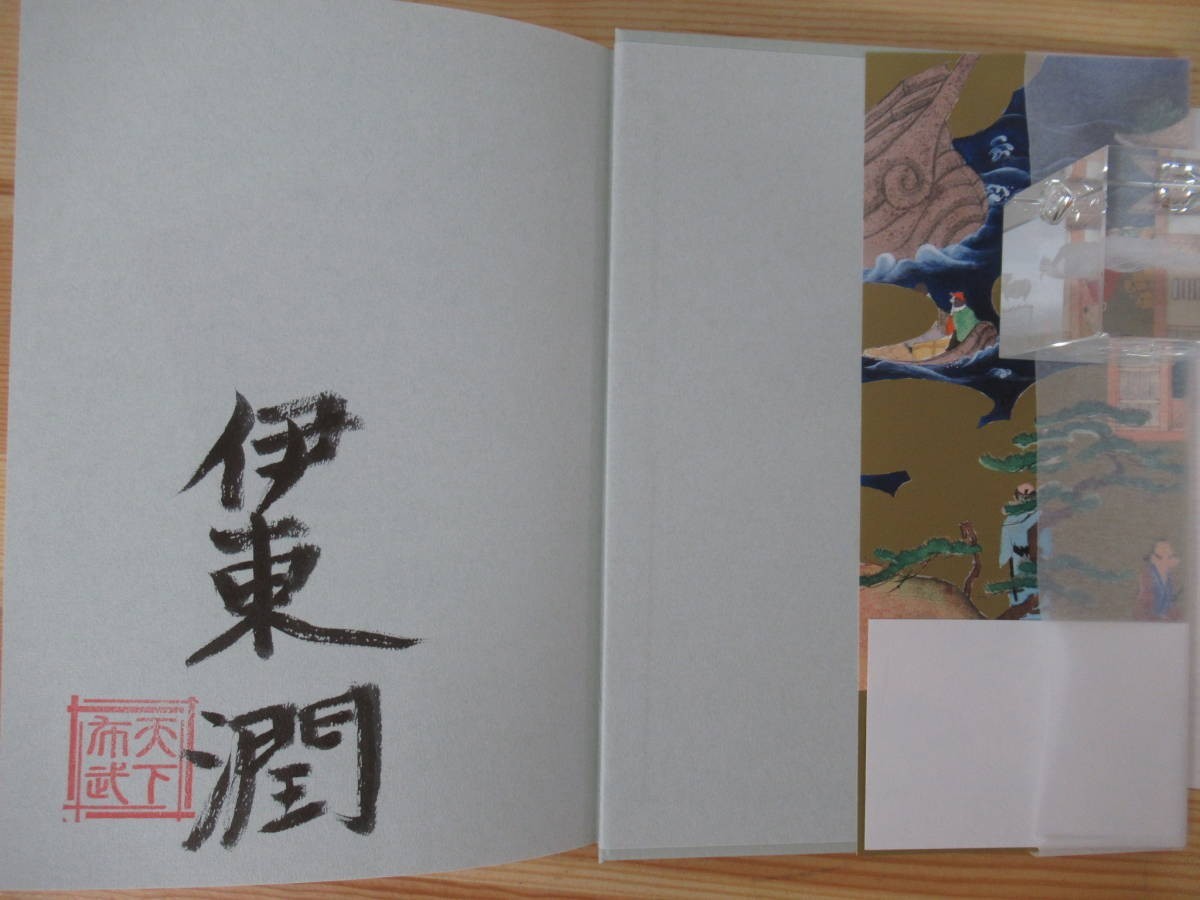 伊東潤
天下
布武